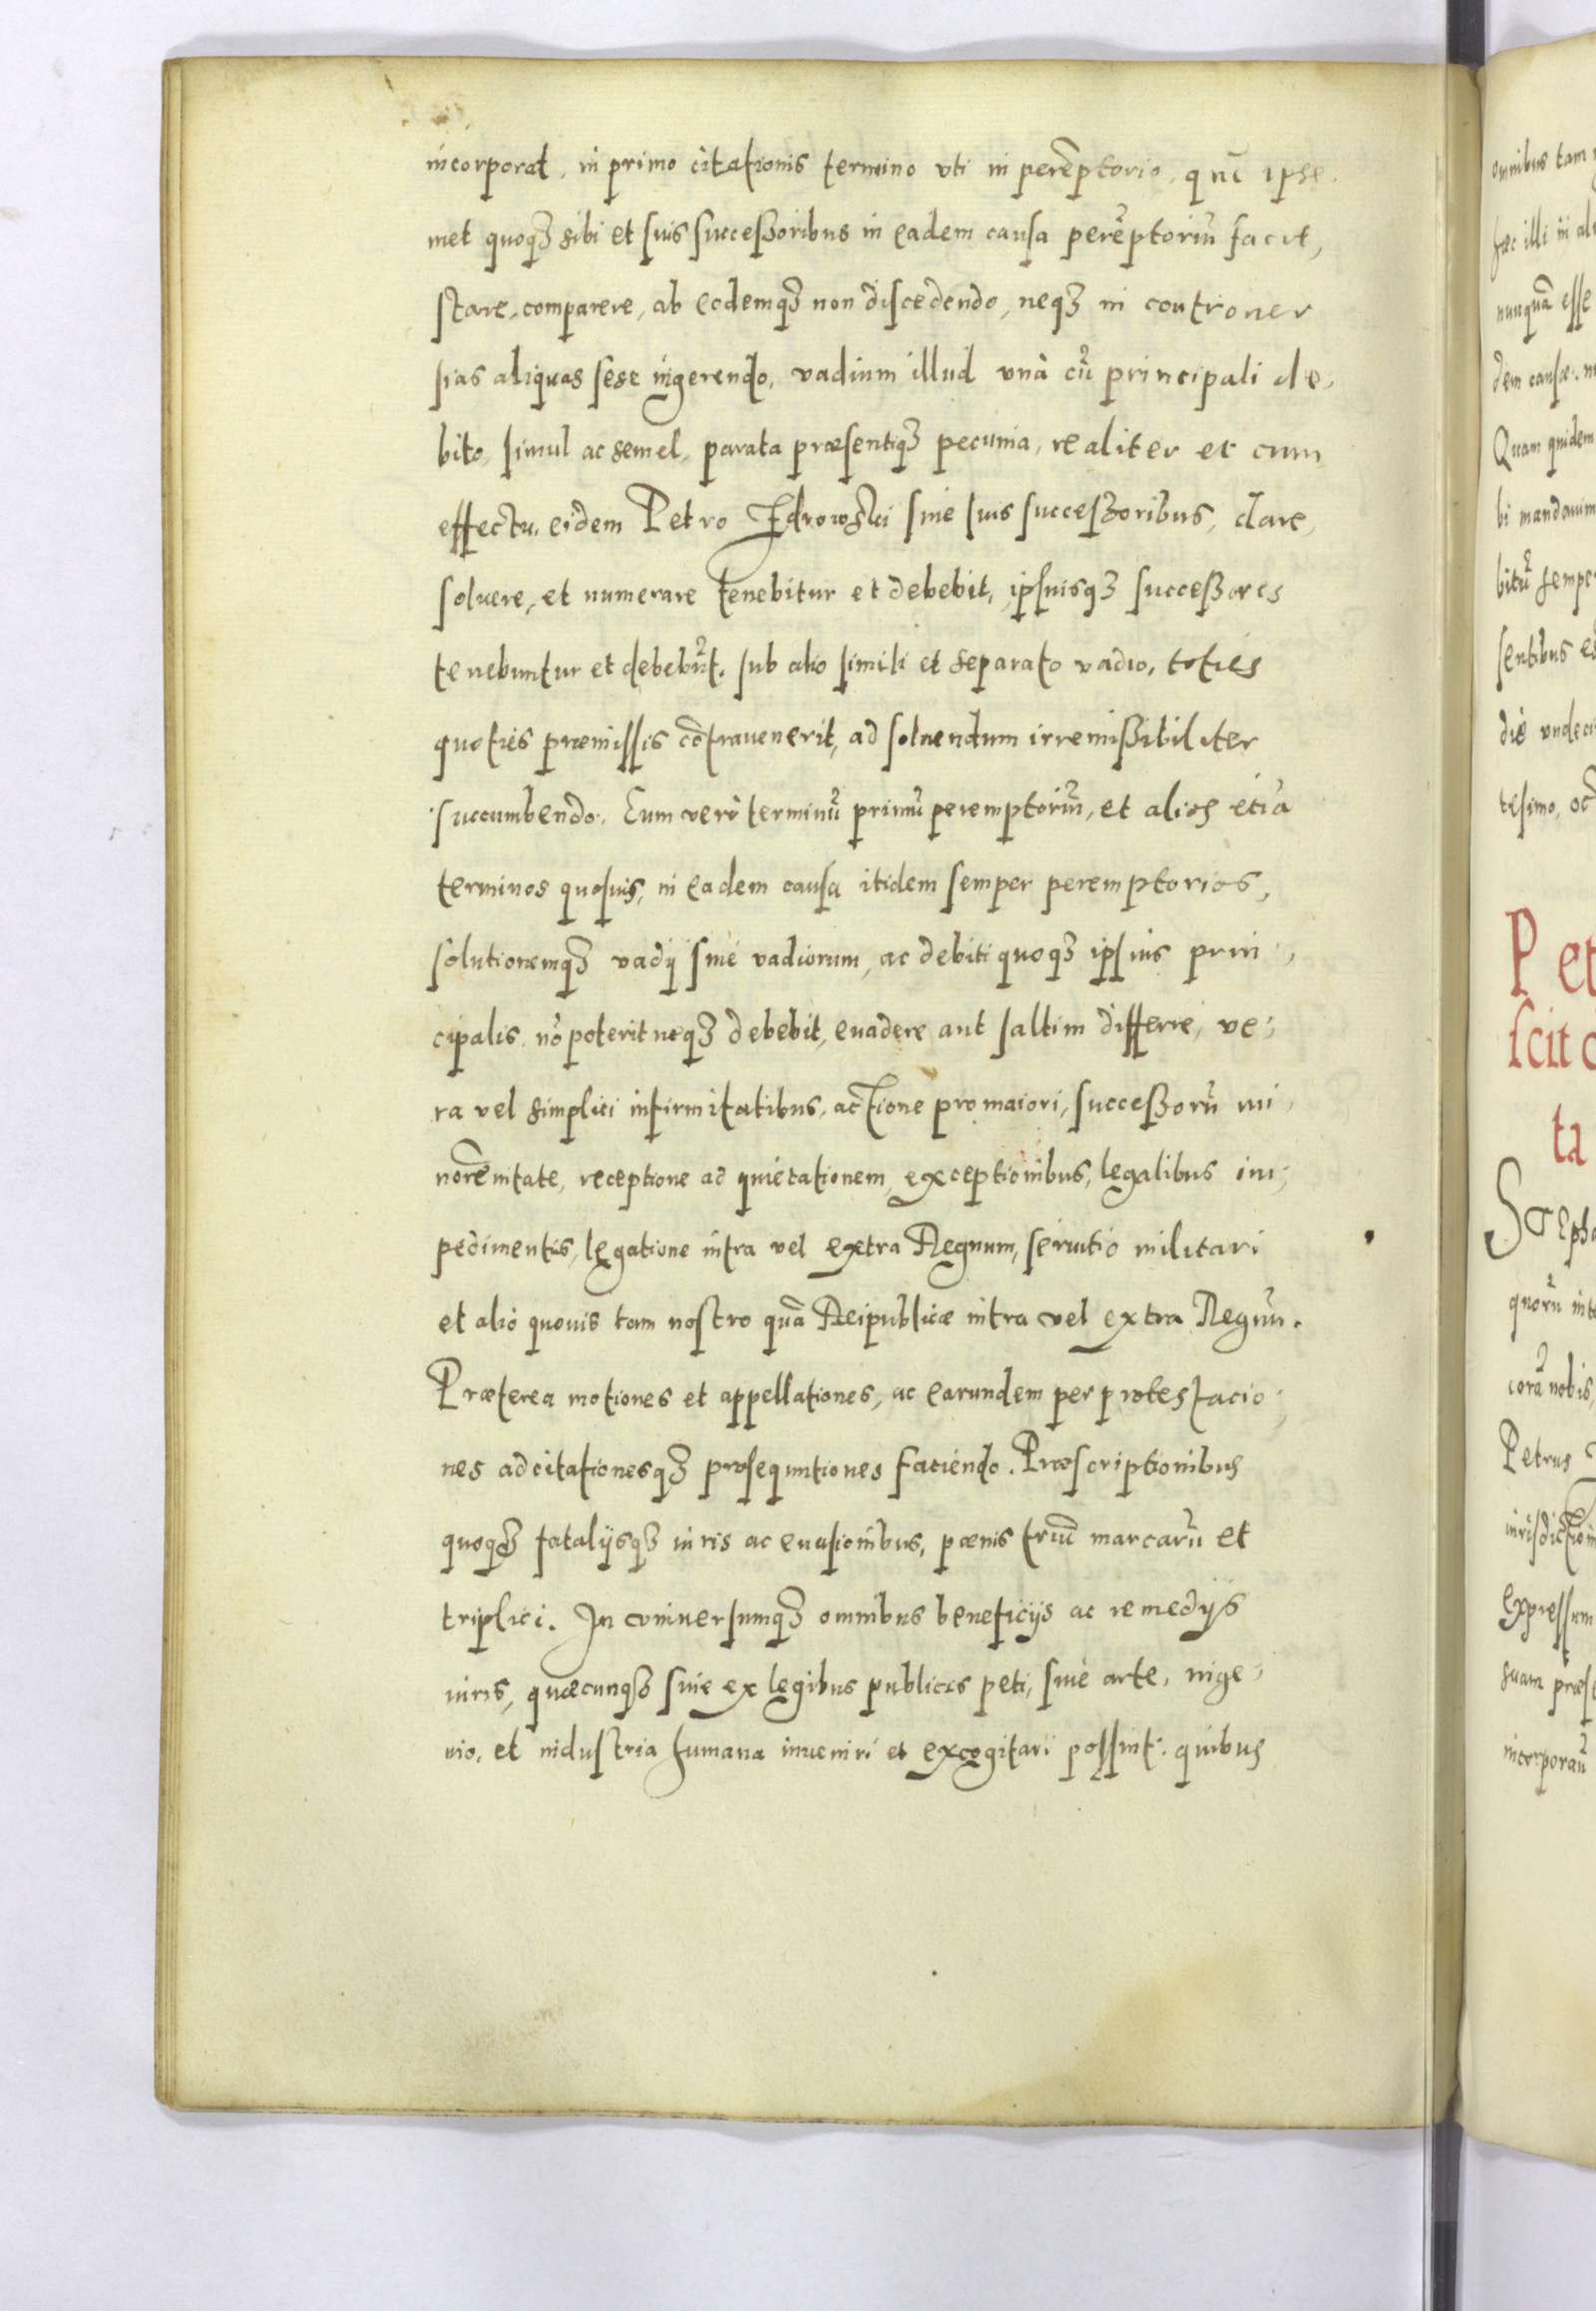 incorporat, in primo citationis termino vti in perēptorio, quē ipse
met quoqȝ sibi et suis successoribus in eadem causa perēptoriū facit,
stare, comparere, ab eodemqȝ non discedendo, neqȝ in controuer
sias aliquas sese ingerendo, vadium illud vnà cū principali de,
bito, simul ac semel, parata præsentiqȝ pecunia, realiter et cum
effectu, eidem Petro Zdrowski siue suis successoribus, dare,
soluere, et numerare tenebitur et debebit, ipsiusqȝ successores
tenebuntur et debebūt, sub alio simili et separato vadio, toties
quoties præmissis cōtrauenerit, ad soluendum irremissibiliter
succumbendo. Eum verò terminū primū peremptoriū, et alios etiā
terminos quosuis, in eadem causa itidem semper peremptorios,
solutionemqȝ vadij siue vadiorum, ac debiti quoqȝ ipsius prin,
cipalis, nō poterit neqȝ debebit, euadere aut saltim differre, ve,
ra vel simplici infirmitatibus, actione pro maiori, successorū mi,
norēnitate, receptione ad quietationem, exceptionibus, legalibus im,
pedimentis, legatione intra vel extra Regnum, seruitio militari
et alio quouis tam nostro quā Reipublicæ intra vel extra Regnū.
Præterea motiones et appellationes, ac earundem per protestacio,
nes ad citationesqȝ prosequutiones faciendo. Præscriptionibus
quoqȝ fatalijsqȝ iuris ac euasionibus, pœnis triū marcarū et
triplici. In vniuersumqȝ omnibus beneficijs ac remedijs
iuris, quæcunqȝ siue ex legibus publicis peti, siue arte, inge,
nio, et industria humana inueniri et excogitari possint: quibus
omnibus tam
hæc illi in al
nunquā esse
dem causæ. n
Quam quidem
bi mandauim
bitū semper
sentibus es
die vndeci
tesimo, oc
Pet
scit c
ta
Steph
quorū int
corā nobis,
Petrus
iurisdiction
expressum
suam præs
incorporaū